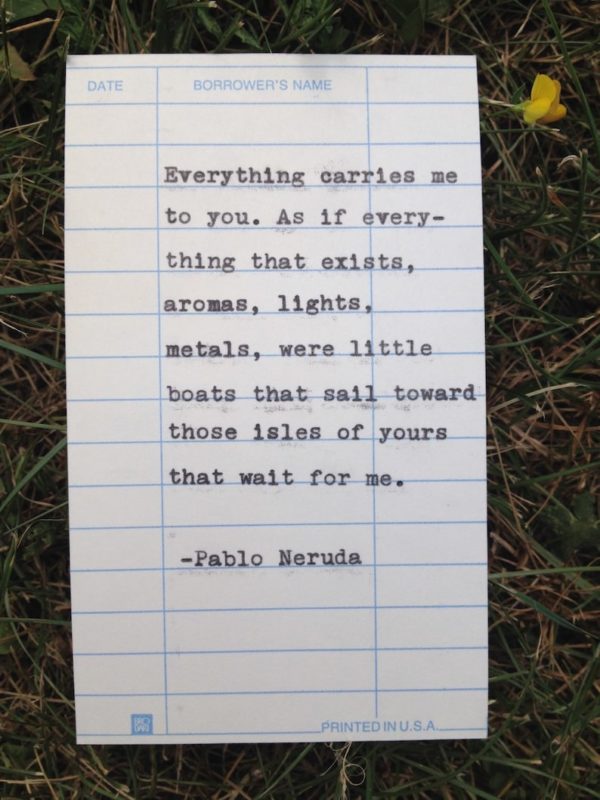 DATE BORROWER'S NAME
Everything carries me
to you. As if every-
thing that exists,
aromas, lights,
metals, were little
boats that sail toward
those isles of yours
that wait for me.
-Pablo Neruda
BRO
DART
PRINTED IN U.S.A.